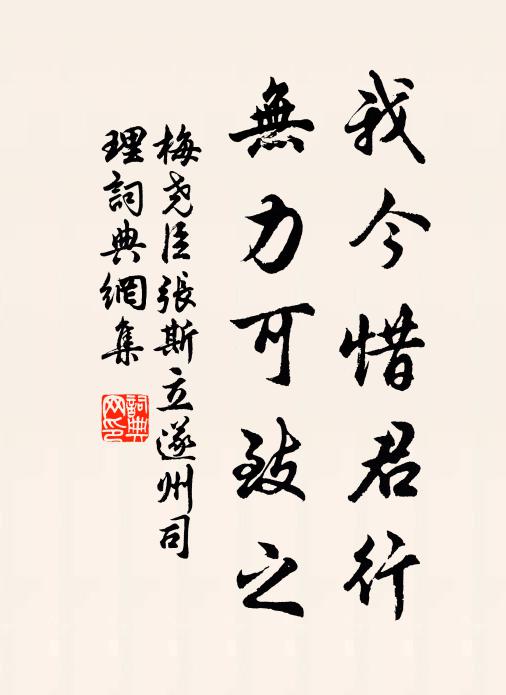 我今惜君行
無力可致之
梅尧臣張斯立遂州司
理詞典網集
詞典
网印